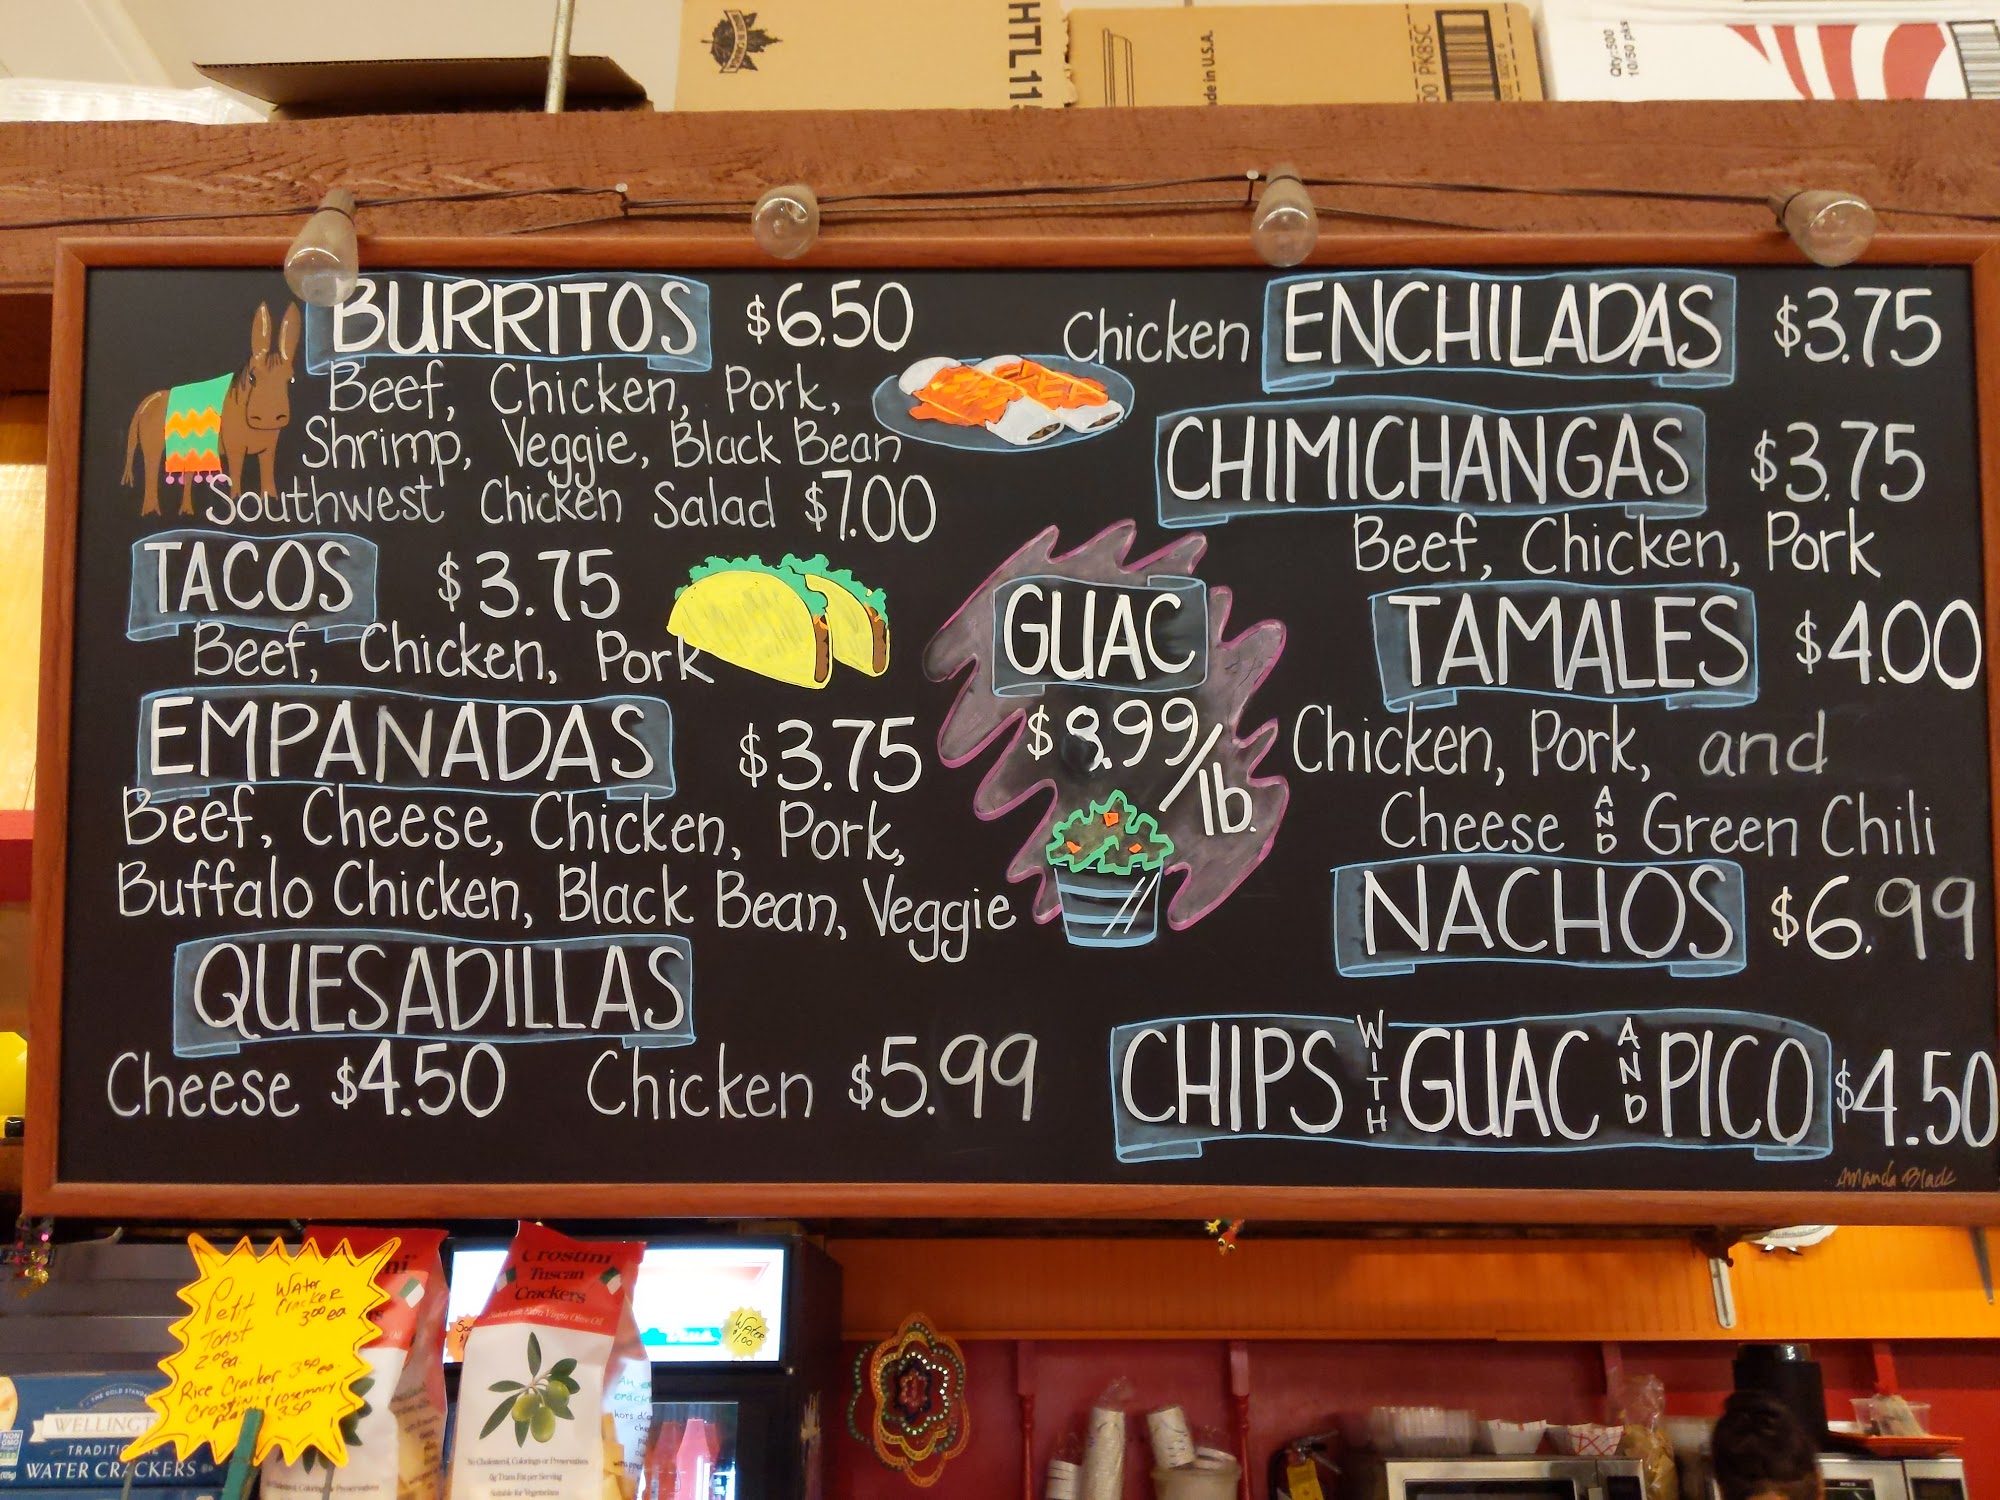 HTL11
de in U.S.A.
00 PK8SC
Qty:500
10/50 pks
BURRITOS $6.50
Beef, Chicken, Pork,
Shrimp, Veggie, Black Bean
Southwest Chicken Salad $7.00
TACOS $3.75
Beef, Chicken, Pork
EMPANADAS $3.75
Beef, Cheese, Chicken, Pork,
Buffalo Chicken, Black Bean, Veggie
QUESADILLAS
Cheese $4.50 Chicken $5.99
GUAC
$8.99/lb.
Chicken ENCHILADAS $3.75
CHIMICHANGAS $3.75
Beef, Chicken, Pork
TAMALES $4.00
Chicken, Pork, and
Cheese AND Green Chili
NACHOS $6.99
CHIPS WITH GUAC AND PICO $4.50
Amanda Black
Petit Toast 2.00 ea.
Water Cracker 3.00 ea
Rice Cracker 3.50 ea.
Crostini rosemary
plain 3.50
WELLINGT
TRADITI
WATER CRACKERS
Crostini
Tuscan
Crackers
No Cholesterol, Colorings or Preservatives
0g Trans Fat per Serving
Suitable for Vegetarians
Water
$1.00